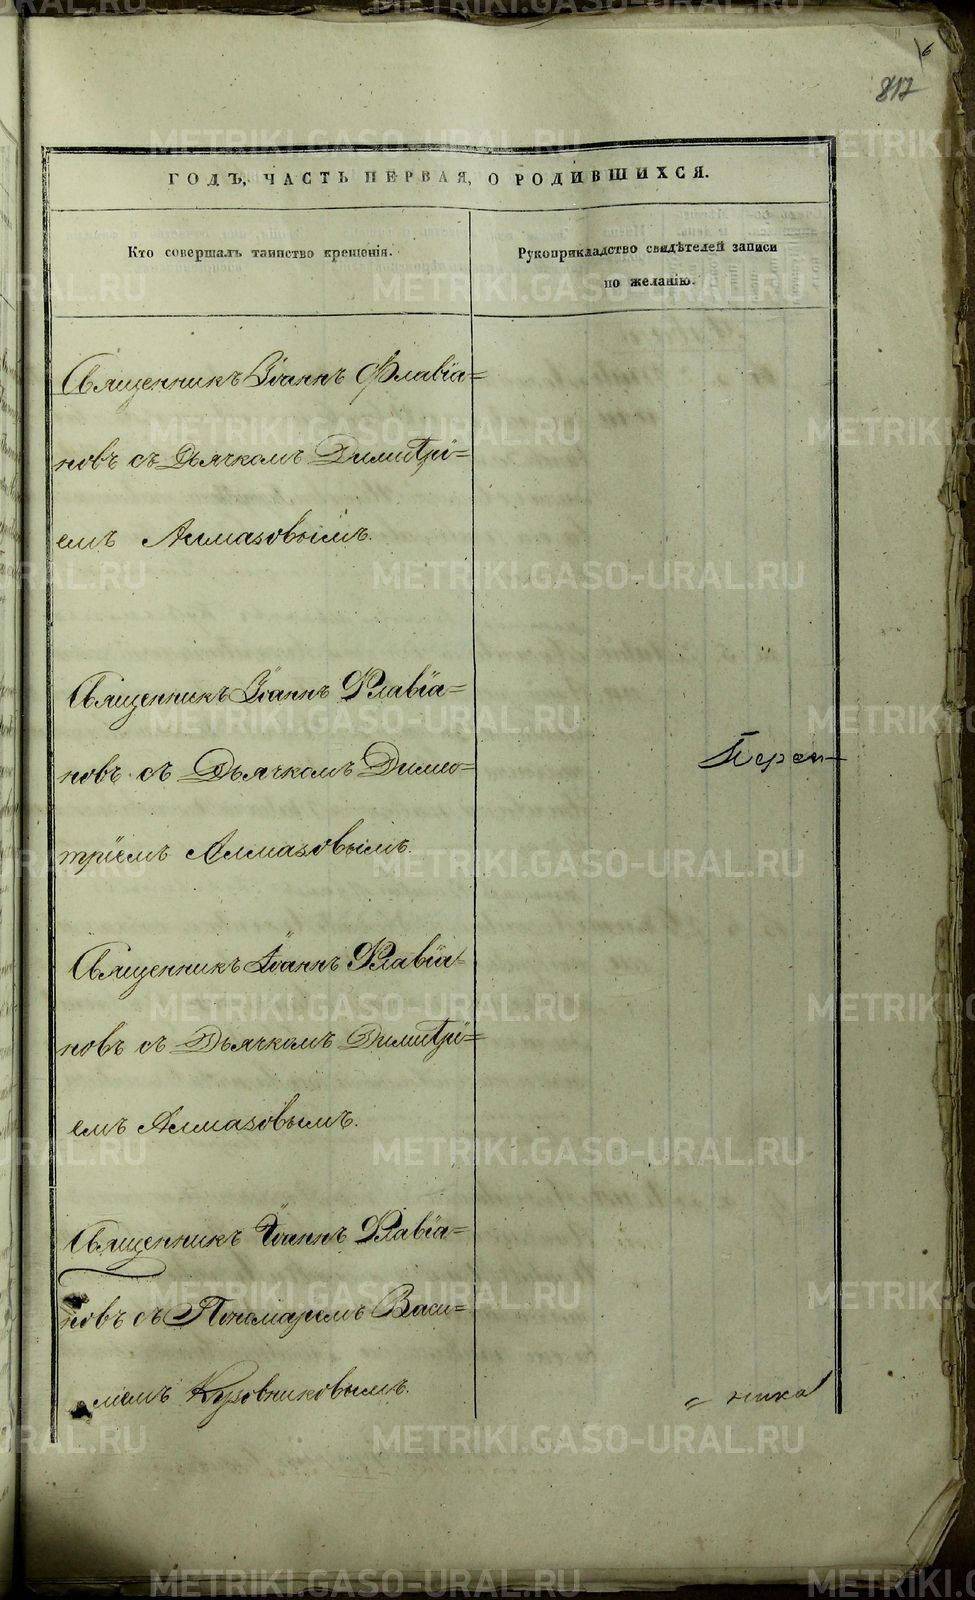 6
817
ГОДЪ, ЧАСТЬ ПЕРВАЯ, О РОДИВШИХСЯ.
Кто совершалъ таинство крещенія.
Рукоприкладство свидѣтелей записи
по желанію.
Священникъ Іоаннъ Флавіа=
новъ съ Дьячкомъ Димитрі=
емъ Алмазовымъ.
Священникъ Іоаннъ Флавіа=
новъ съ Дьячкомъ Дими=
тріемъ Алмазовымъ.
Священникъ Іоаннъ Флавіа=
новъ съ Дьячкомъ Димитрі=
емъ Алмазовымъ.
Священникъ Іоаннъ Флавіа=
новъ съ Пономаремъ Васи=
лиемъ Кузовниковымъ.
= ника
METRIKI.GASO-URAL.RU